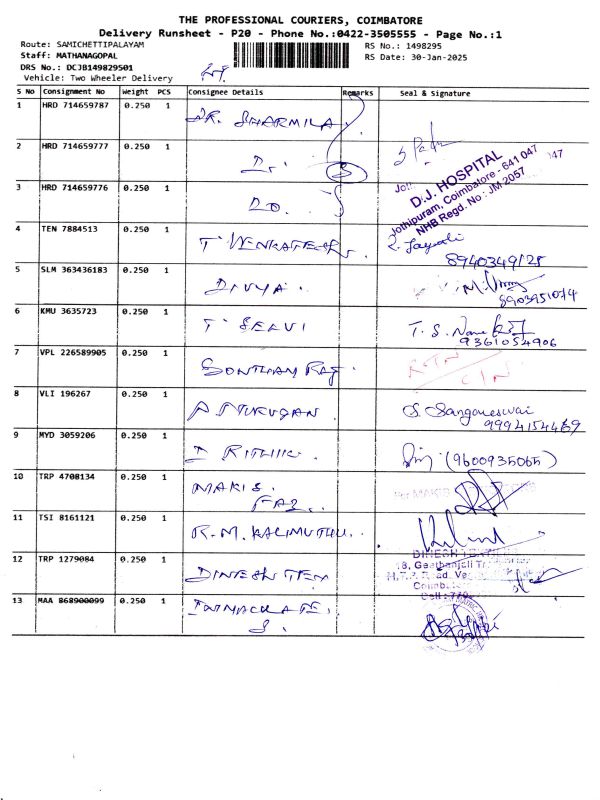 THE PROFESSIONAL COURIERS, COIMBATORE
Delivery Runsheet - P20 - Phone No.:0422-3505555 - Page No.:1
Route: SAMICHETTIPALAYAM
RS No.: 1498295
Staff: MATHANAGOPAL
RS Date: 30-Jan-2025
DRS No.: DCJB149829501
Vehicle: Two Wheeler Delivery
S No Consignment No Weight PCS Consignee Details Remarks Seal & Signature
1 HRD 714659787 0.250 1 DR. SHARMILA
2 HRD 714659777 0.250 1
D.J. HOSPITAL
Jothipuram, Coimbatore - 641 047
NHB Regd. No : JM 2057
3 HRD 714659776 0.250 1 DO.
4 TEN 7884513 0.250 1 T VENKATESH.
8940349128
5 SLM 363436183 0.250 1 DIVYA.
8903951074
6 KMU 3635723 0.250 1 T SELVI
9361054906
7 VPL 226589905 0.250 1
RTN
8 VLI 196267 0.250 1 A MURUGAN
S. Sangameswari
9994154469
9 MYD 3059206 0.250 1 D RITHIK
(9600935065)
10 TRP 4708134 0.250 1 MAKIS
FAZ.
11 TSI 8161121 0.250 1 R.M. KALIMUTHU.
12 TRP 1279084 0.250 1 DINESH TEX
DINESH
18, Geethanjali
13 MAA 868900099 0.250 1 IMMACULATE.
S.